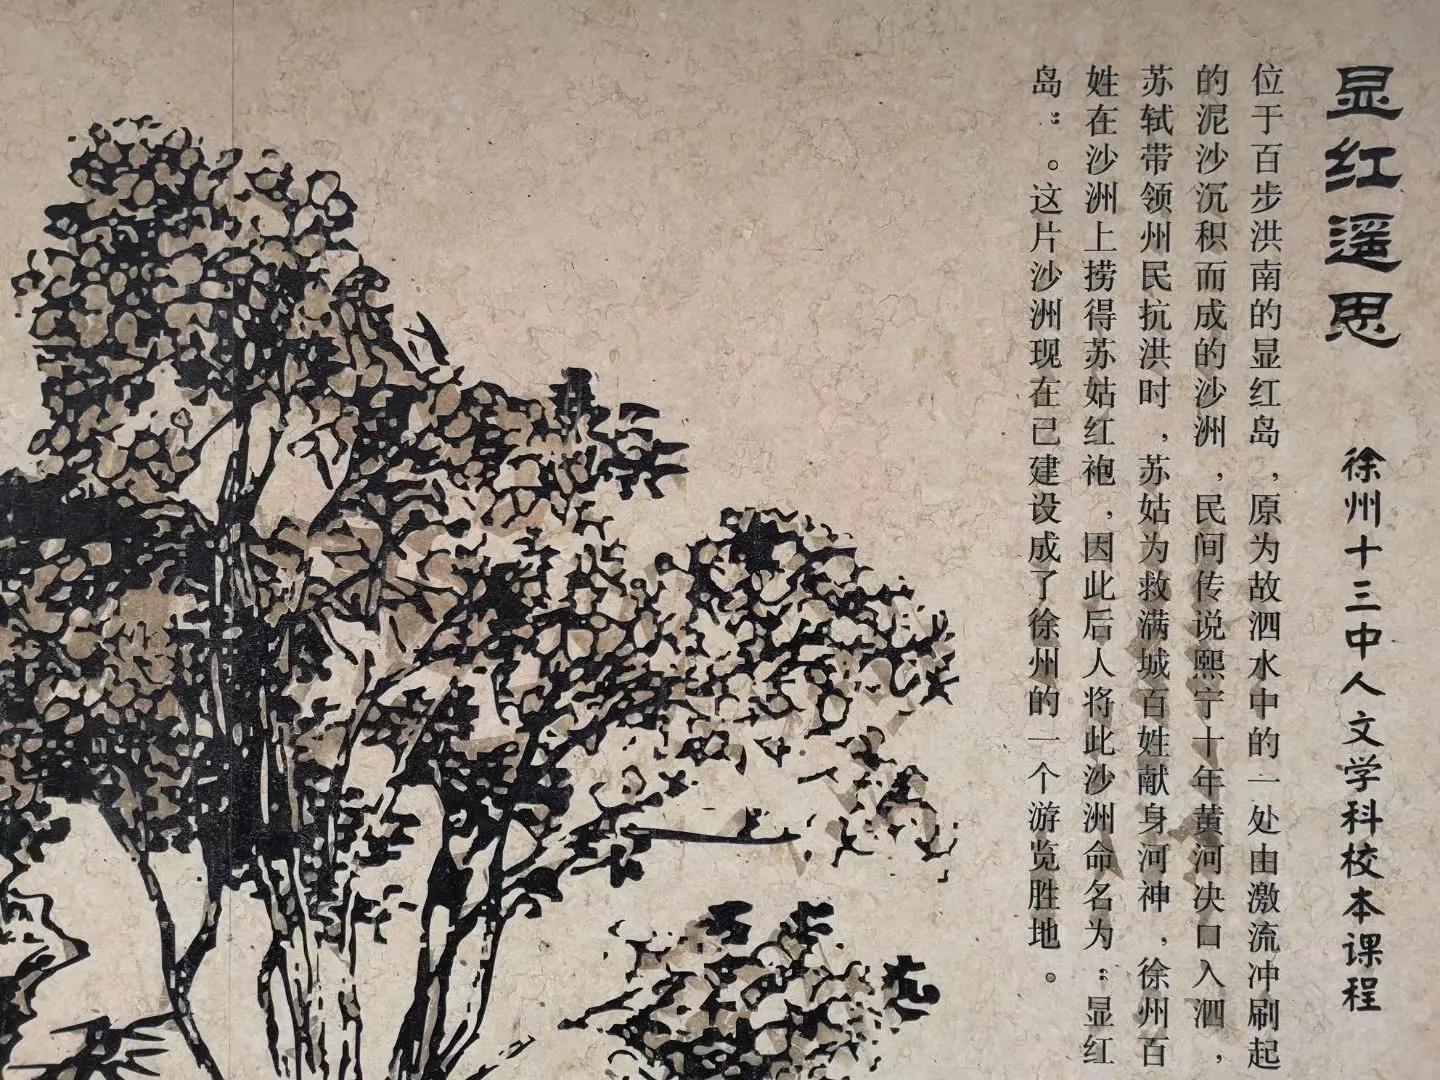 显红遥思
徐州十三中人文学科校本课程
位于百步洪南的显红岛，原为故泗水中的一处由激流冲刷起
的泥沙沉积而成的沙洲，民间传说熙宁十年黄河决口入泗，
苏轼带领州民抗洪时，苏姑为救满城百姓献身河神，徐州百
姓在沙洲上捞得苏姑红袍，因此后人将此沙洲命名为“显红
岛”。这片沙洲现在已建设成了徐州的一个游览胜地。